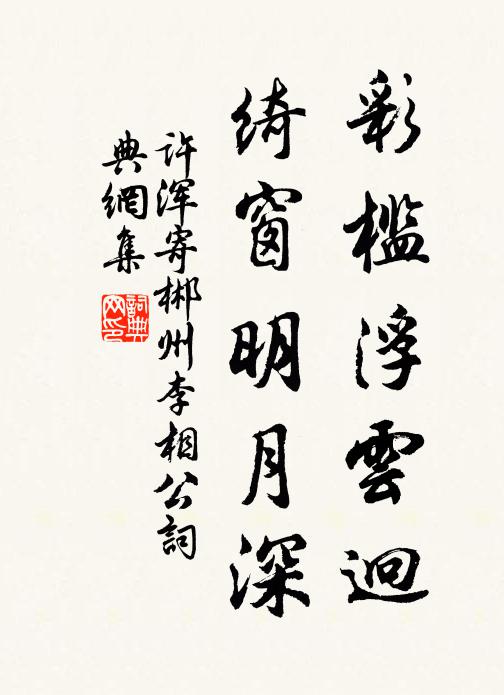 彩檻浮雲迥
綺窗明月深
許渾寄郴州李相公詞
典網集
詞典网印